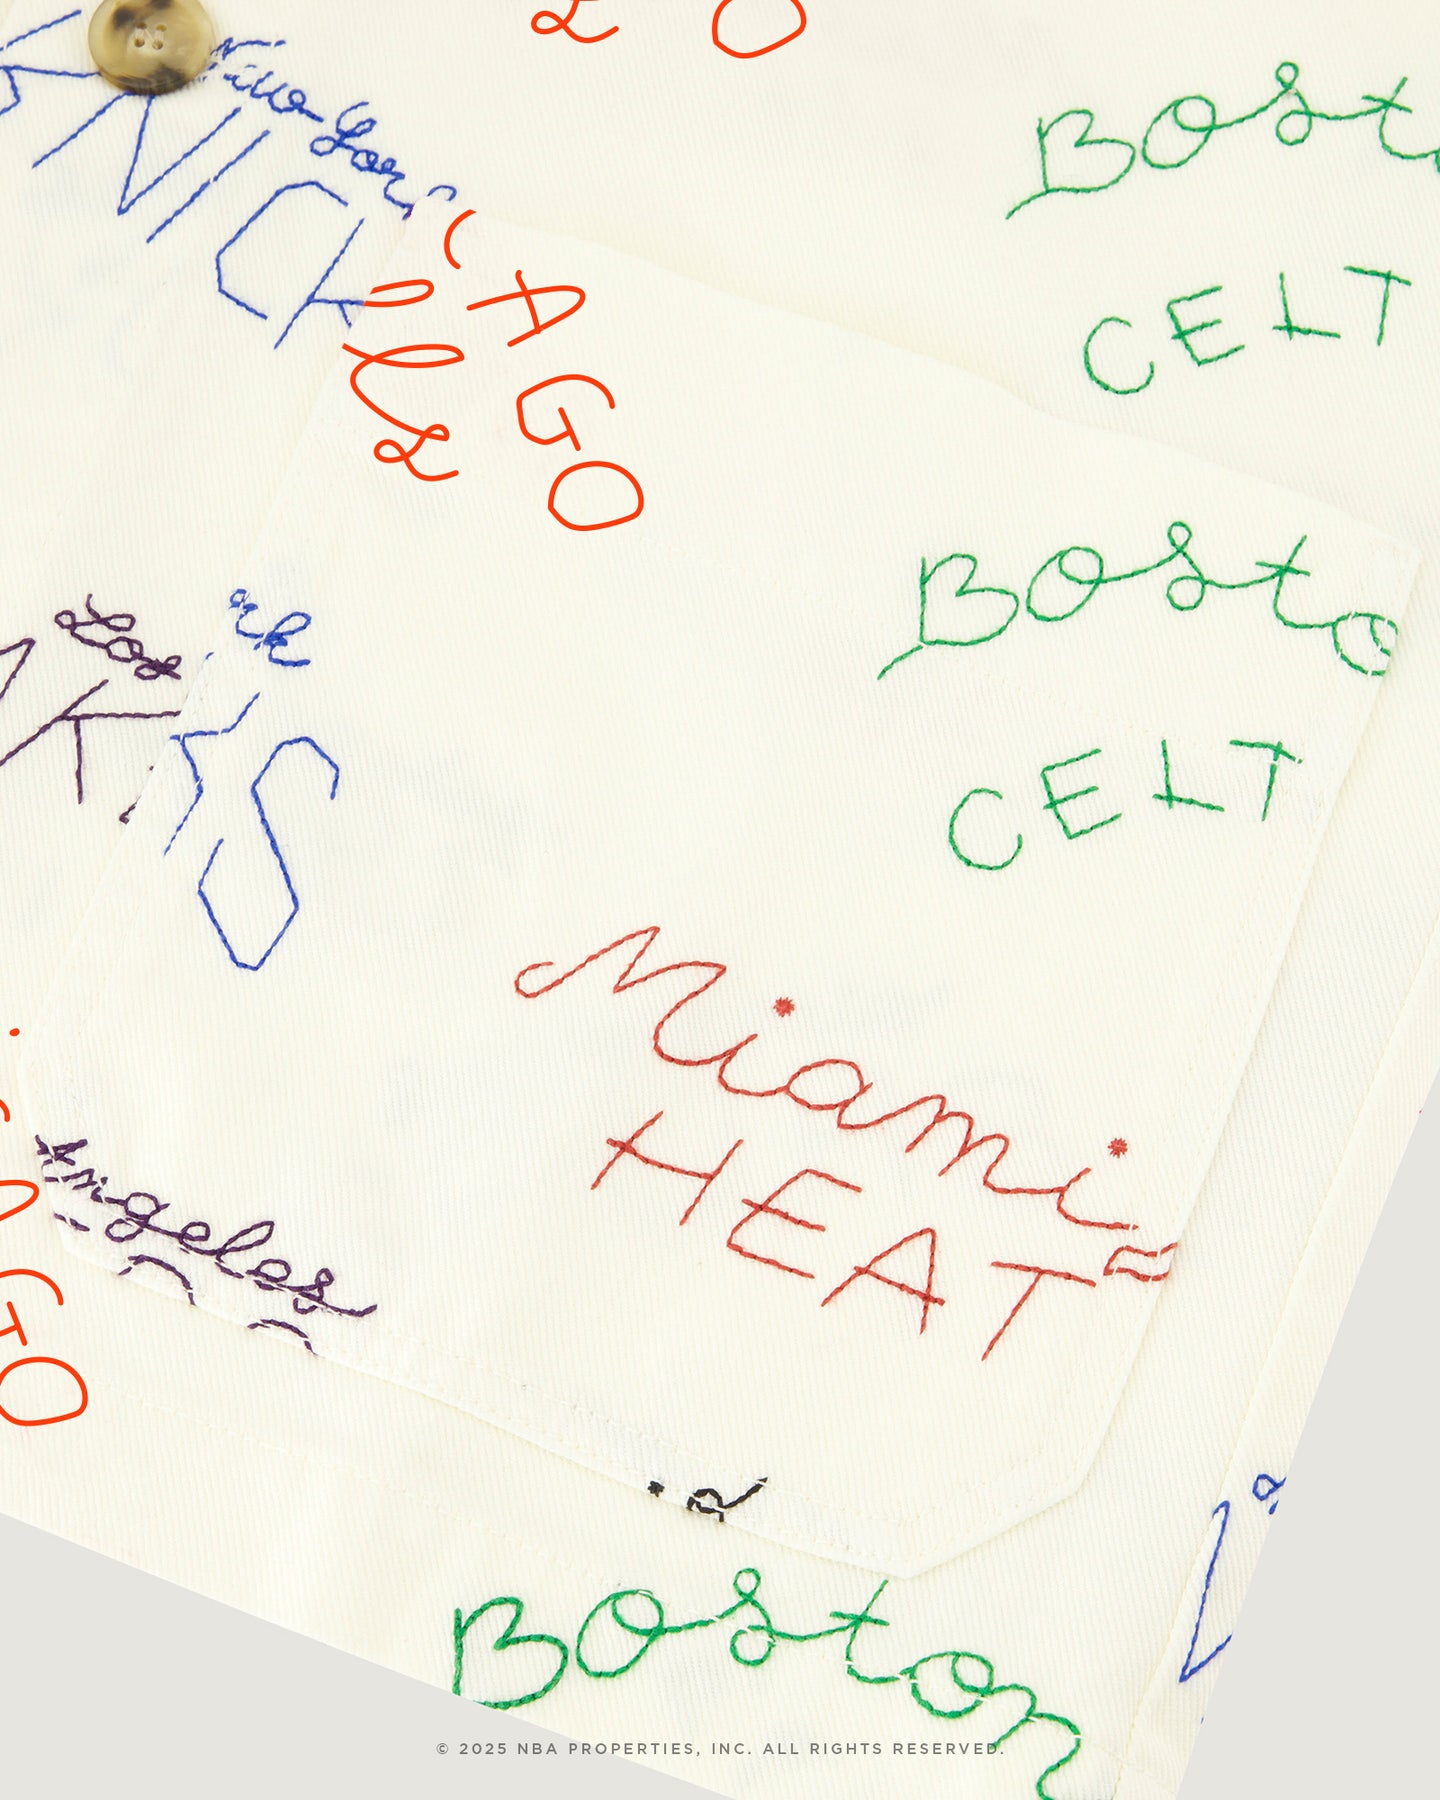 New York
KNICK
Bosto
CELT
AGO
ls
Bosto
CELT
Los
ork
KS
Miami
HEAT
Angeles
AGO
Boston
© 2025 NBA PROPERTIES, INC. ALL RIGHTS RESERVED.